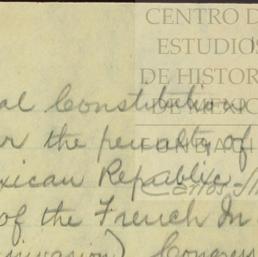 CENTRO D
ESTUDIOS
DE HISTOR
DE MEXIC
al Constitution
r the penalty of
FUNDACI
xican Republic
Carlos
of the French In
invasion) Congress